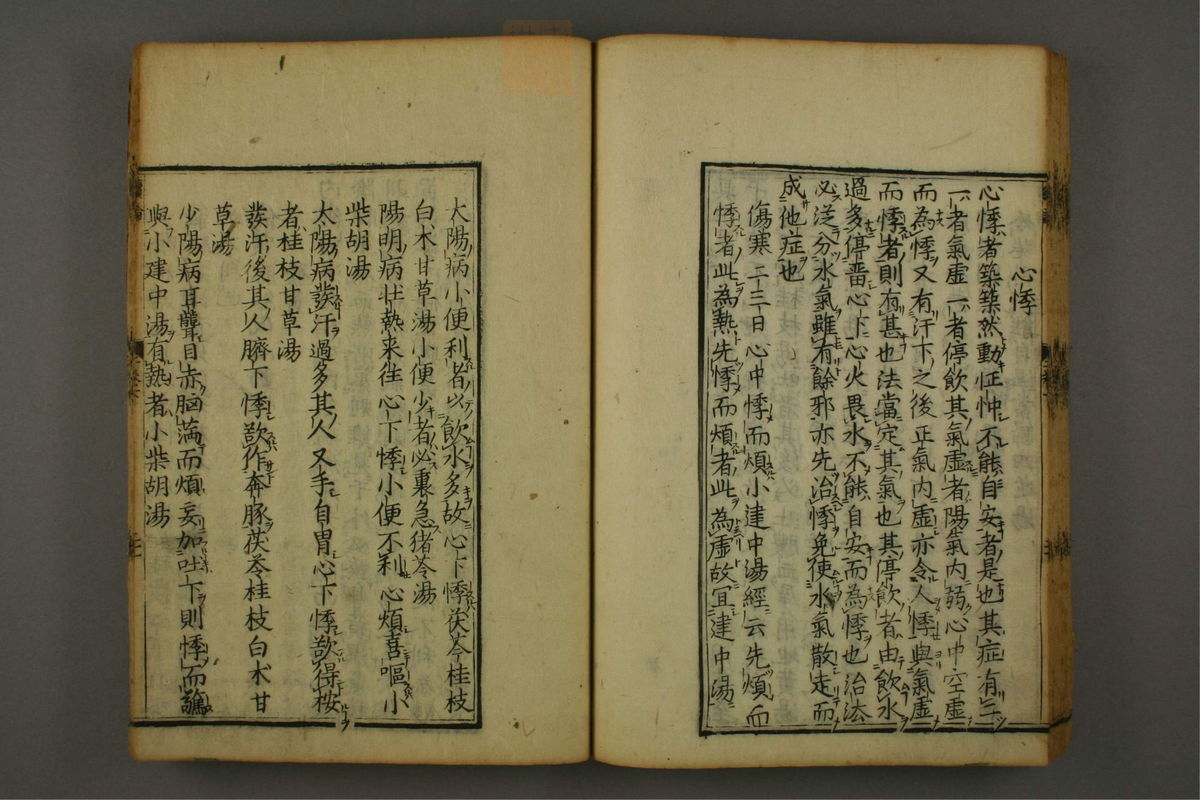 心悸
心悸者築築然動怔忡不能自安者是也其症有二
一者氣虛一者停飲其氣虛者陽氣內弱心中空虛
而為悸又有汗下之後正氣內虛亦令人悸與氣虛
而悸者則有甚也法當定其氣也其停飲者由飲水
過多停畜心下心火畏水不能自安而為悸也治法
必泛分水氣雖有餘邪亦先治悸免使水氣散走而
成他症也
傷寒二三日心中悸而煩小建中湯經云先煩而
悸者此為熱先悸而煩者此為虛故宜建中湯
太陽病小便利者以飲水多故心下悸茯苓桂枝
白朮甘草湯小便少者必裏急猪苓湯
陽明病壮熱来往心下悸小便不利心煩喜嘔小
柴胡湯
太陽病發汗過多其人叉手自冒心下悸欲得桉
者桂枝甘草湯
發汗後其人臍下悸欲作奔豚茯苓桂枝白朮甘
草湯
少陽病耳聾目赤胸滿而煩妄加吐下則悸而驚
與小建中湯有熱者小柴胡湯